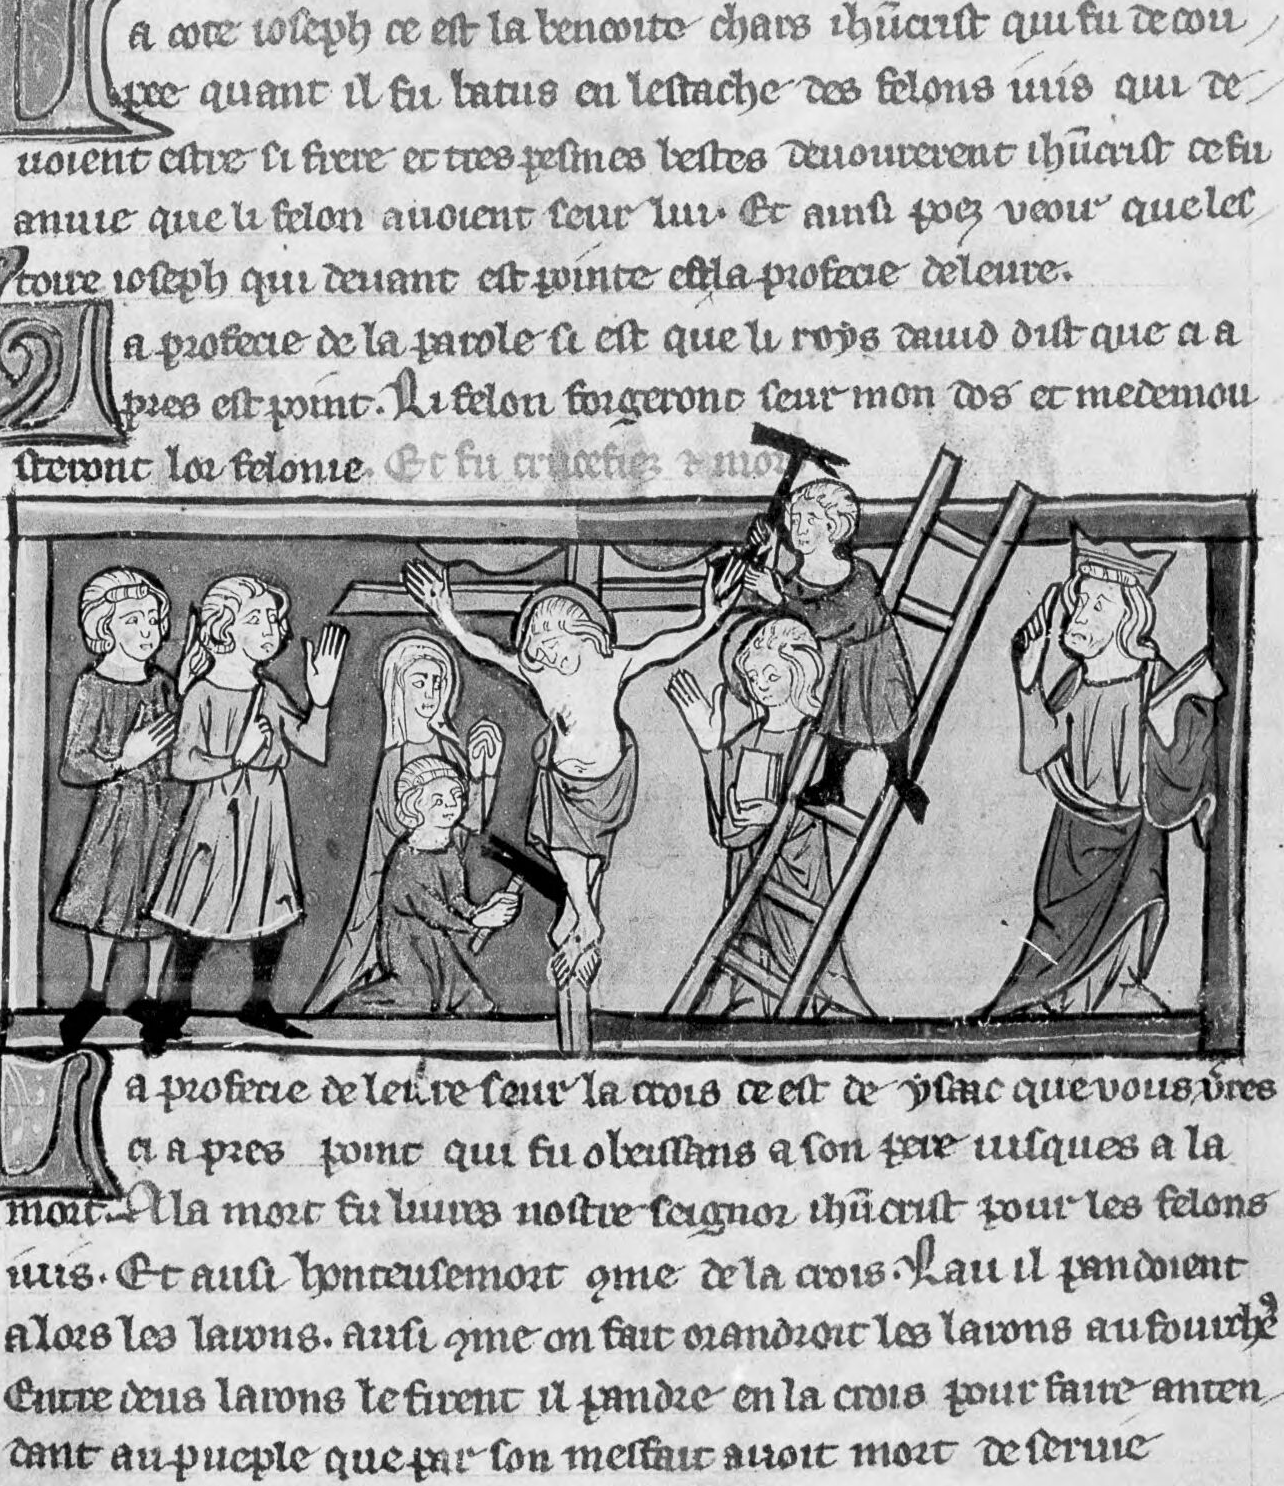 La cote ioseph ce est la benooite chars ihūcrist qui fu decou
pee quant il fu batus en lestache des felons iuis qui de
uoient estre si frere et tres pesmes bestes deuourerent ihūcrist ce fu
anuie que li felon auoient seur lui. Et ainsi poez veoir que les
toire ioseph qui deuant est pointe est la profecie deleure.
La profecie de la parole si est que li roys dauid dist que ci a
pres est point. Li felon forgeront seur mon dos et medemou
steront lor felonie. Et fu crucefiez & mors
La profecie de leure seur la crois ce est de ysaac que vous verres
ci a pres point qui fu obeissans a son pere iusques a la
mort. A la mort fu liures nostre seignor ihūcrist pour les felons
iuis. Et ausi honteuse mort 9me de la crois. Lau il pandoient
alors les larons. ausi 9me on fait orandroit les larons au fourches
Entre deus larons le firent il pandre en la crois pour faire anten
dant au pueple que par son meffait auoit mort deseruie